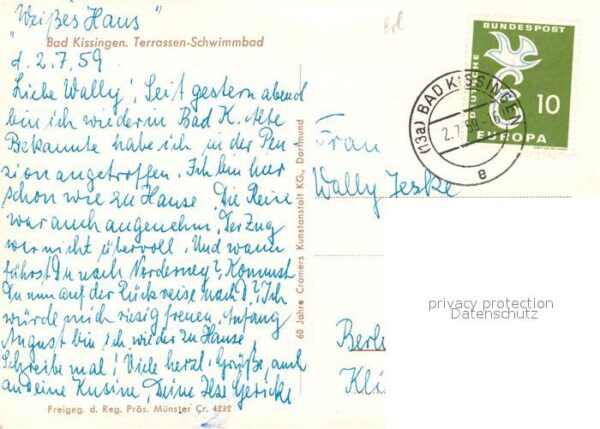 "Weißes Haus"
Bad Kissingen. Terrassen-Schwimmbad
d. 2.7.59
Liebe Wally! Seit gestern abend
bin ich wieder in Bad K. Alte
Bekannte habe ich in der Pen-
sion angetroffen. Ich bin hier
schon wie zu Hause. Die Reise
war auch angenehm. Der Zug
war nicht übervoll. Und wann
fährst Du nach Norderney? Kommst
Du nun auf der Rückreise nach D? Ich
würde mich riesig freuen. Anfang
August bin ich wieder zu Hause.
Schreibe mal! Viele herzl. Grüße, auch
an deine Kusine, Deine Ilse Gericke
Freigeg. d. Reg. Präs. Münster Cr. 4232
60 Jahre Cramers Kunstanstalt KG., Dortmund
DEUTSCHE BUNDESPOST
10
EUROPA
(13a) BAD KISSINGEN
2.7.59
e
Frau
Wally Jeske
privacy protection
Datenschutz
Berl
Kli